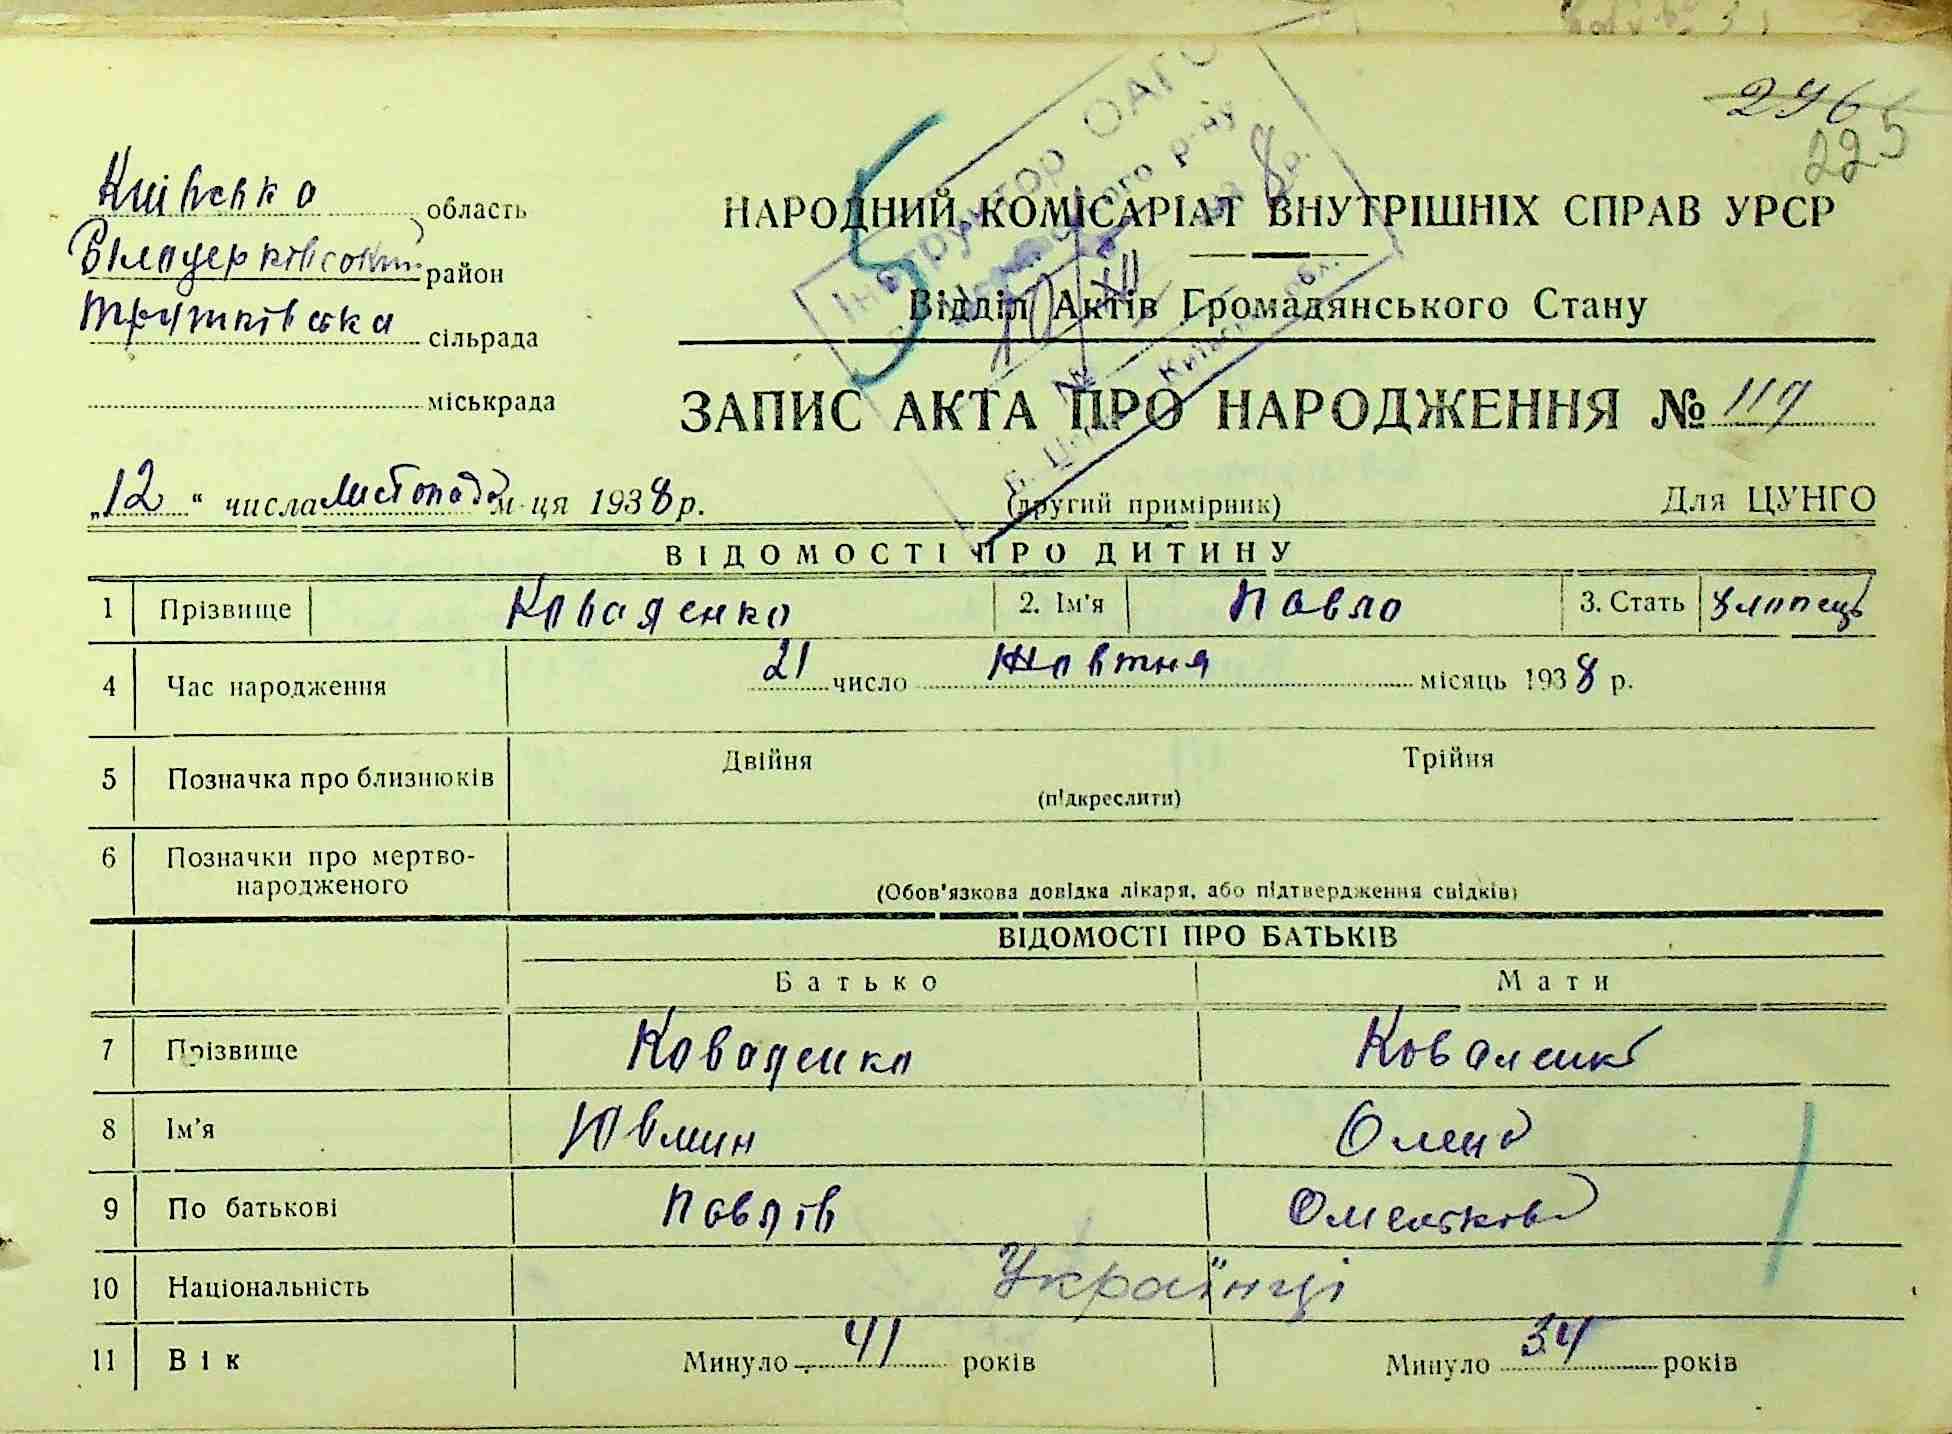 296
225
Київська область
Білоцерківський район
Трушківська сільрада
міськрада
НАРОДНИЙ КОМІСАРІАТ ВНУТРІШНІХ СПРАВ УРСР
Відділ Актів Громадянського Стану
ЗАПИС АКТА ПРО НАРОДЖЕННЯ № 119
5
Інструктор ОАГС
р-ну
Київської обл.
„12“ числа листопада м-ця 1938 р.
(другий примірник)
Для ЦУНГО
ВІДОМОСТІ ПРО ДИТИНУ
1 Прізвище Коваленко 2. Ім'я Павло 3. Стать хлопець
4 Час народження 21 число Жовтня місяць 1938 р.
5 Позначка про близнюків Двійня Трійня
(підкреслити)
6 Позначки про мертво-
народженого
(Обов'язкова довідка лікаря, або підтвердження свідків)
ВІДОМОСТІ ПРО БАТЬКІВ
Батько Мати
7 Прізвище Коваленко Коваленко
8 Ім'я Ювмин Олена
9 По батькові Павлів Омелькова
10 Національність Українці
11 Вік Минуло 41 років Минуло 34 років